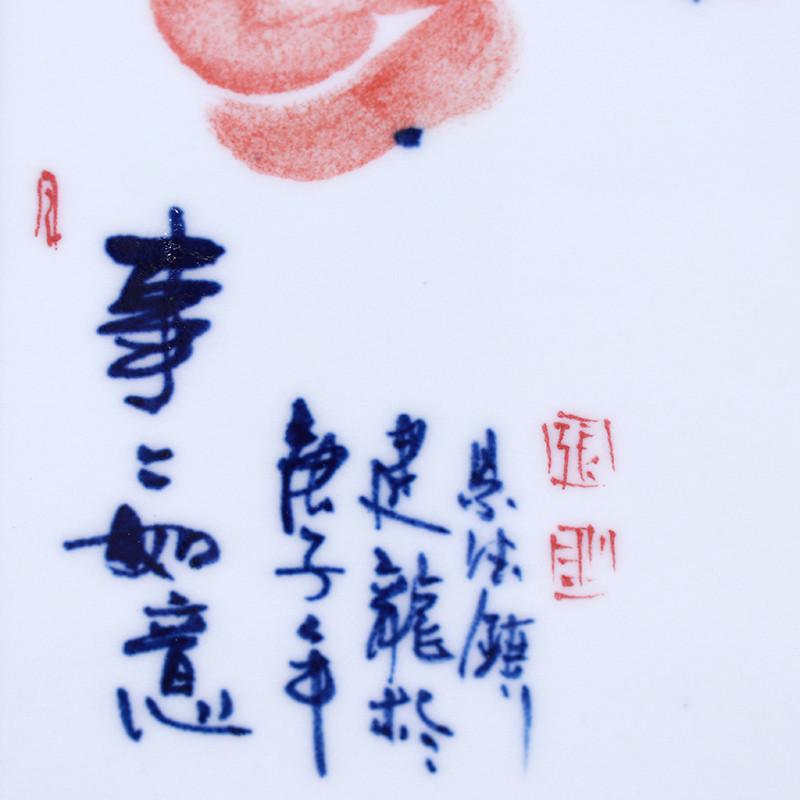 事〻如意
庚子年
建龍於
景德鎮
張